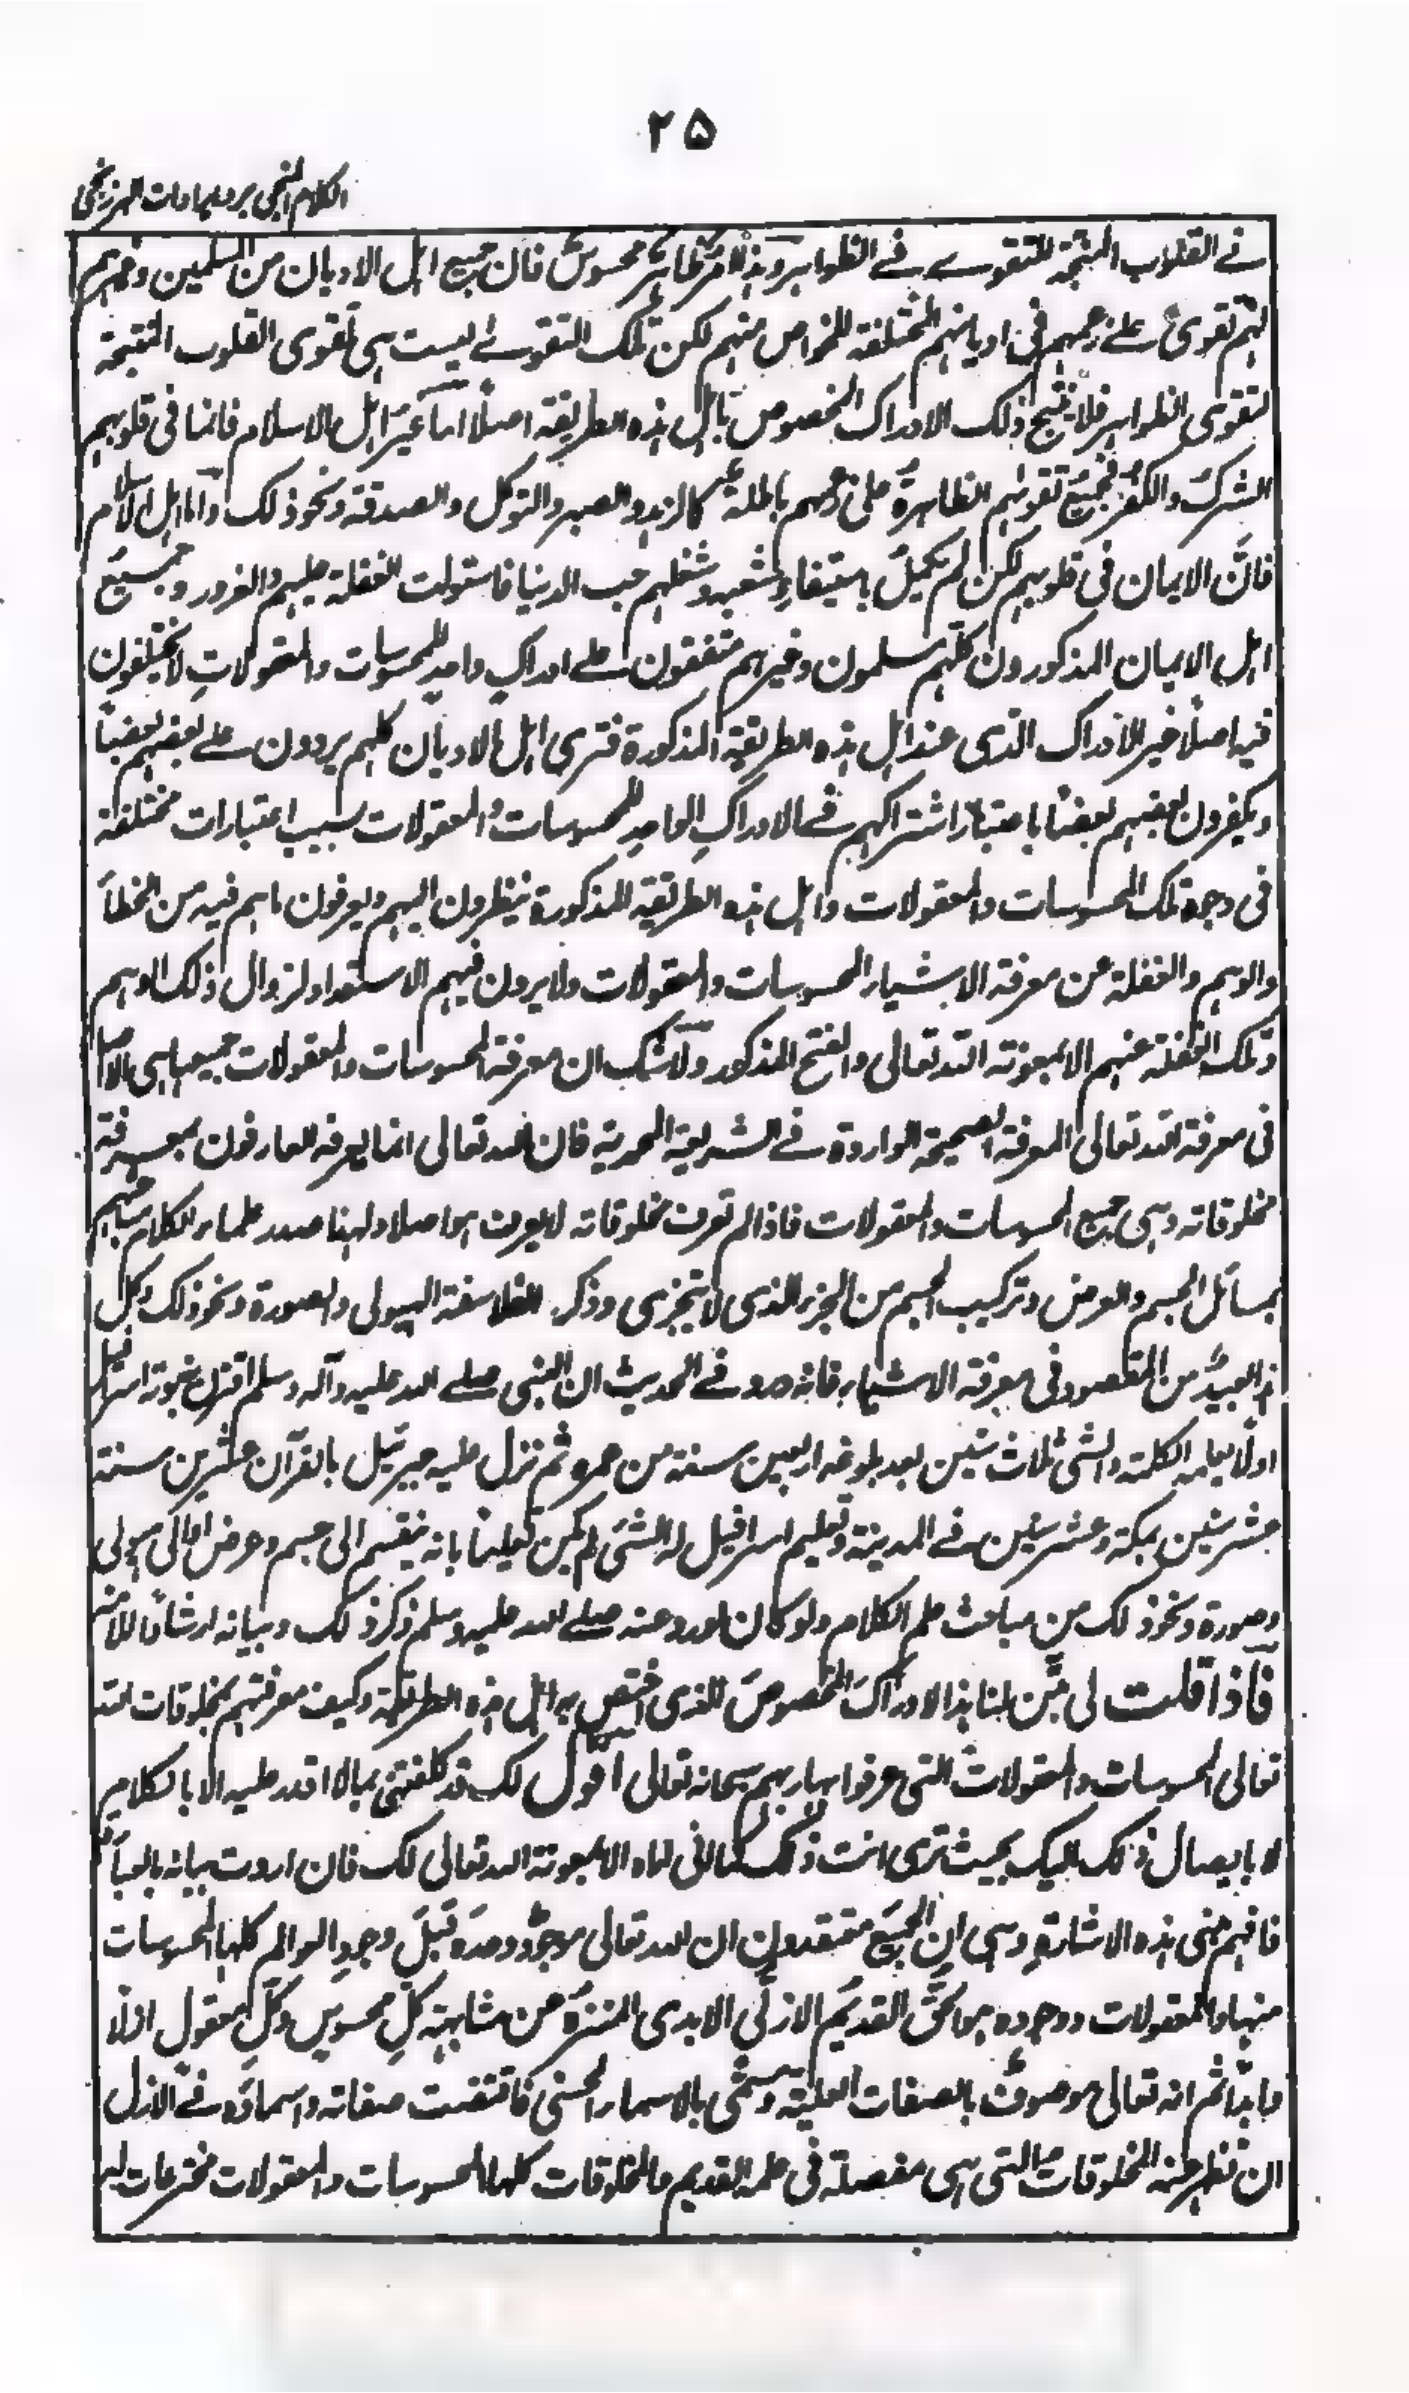 ٢٥
الكلام المنجي برد ايرادات البرزنجي
في القلوب المنتجة للتقوى في الظواهر وهذا امر ظاهر محسوس فان جميع اهل الاديان من المسلمين وغيرهم
لهم تقوى على زعمهم في اديانهم المختلفة للخواص منهم لكن تلك التقوى ليست هي تقوى القلوب المنتجة
لتقوى الظواهر فلا تنتج ذلك الادراك المخصوص باهل هذه الطريقة اصلا اما غير اهل الاسلام فانما في قلوبهم
الشرك والكفر فجميع تقواهم الظاهرة على زعمهم باطلة كالزهد والصبر والتوكل والصدقة ونحو ذلك واما اهل الاسلام
فان الايمان في قلوبهم لكن لم يكمل باستيفاء شعبه وشغلهم حب الدنيا فاستولت الغفلة عليهم والغرور وجميع
اهل الايمان المذكورون كلهم مسلمون وغيرهم متفقون على ادراك واحد للمحسوسات والمعقولات لا يختلفون
فيه اصلا غير الادراك الذي عند اهل هذه الطريقة المذكورة فترى اهل الاديان كلهم يردون على بعضهم بعضا
ويكفرون بعضهم بعضا باعتبار اشتراكهم في الادراك الواحد للمحسوسات والمعقولات بسبب اعتبارات مختلفة
في وجوه تلك المحسوسات والمعقولات واهل هذه الطريقة المذكورة ينظرون اليهم ويعرفون ما هم فيه من الخطأ
والوهم والغفلة عن معرفة الاشياء المحسوسات والمعقولات ولا يرون فيهم الاستعداد لزوال ذلك الوهم
وتلك الغفلة عنهم الا بمعونة الله تعالى والفتح المذكور ولا شك ان معرفة المحسوسات والمعقولات جميعها هي الاصل
في معرفة الله تعالى المعرفة الصحيحة الواردة في الشريعة المحمدية فان الله تعالى انما يعرفه العارفون بمعرفة
مخلوقاته وهي جميع المحسوسات والمعقولات فاذا لم تعرف مخلوقاته لا يعرف هو اصلا ولهذا صدر علماء الكلام كتبهم
بمسائل الجسم والعرض وتركيب الجسم من الجزء الذي لا يتجزى وذكر الفلاسفة الهيولى والصورة ونحو ذلك وكل
هذا بعيد من المقصود في معرفة الاشياء فانه ورد في الحديث ان النبي صلى الله عليه وآله وسلم اقترن بنبوته اسرافيل
اولا يعلمه الكلمة والشئ ثلاث سنين بعد بلوغه اربعين سنة من عمره ثم نزل عليه جبرئيل بالقرآن عشرين سنة
عشر سنين بمكة وعشر سنين في المدينة وتعليم اسرافيل له الشئ لم يكن تعليما بانه ينقسم الى جسم وعرض او الى هيولى
وصورة ونحو ذلك من مباحث علم الكلام ولو كان لورد عنه صلى الله عليه وسلم ذكر ذلك وبيانه ارشادا للامة
فاذا قلت لي بين لنا هذا الادراك المخصوص الذي اختص به اهل هذه الطريقة وكيف معرفتهم بمخلوقات الله
تعالى المحسوسات والمعقولات التي عرفوا بها ربهم سبحانه تعالى اقول لك قد كلفتني بما لا اقدر عليه الا بالكلام
لا بايصال ذلك اليك بحيث ترى انت ذلك كما انى اراه الا بمعونة الله تعالى لك فان اردت بيانه بالعبارة
فافهم معنى هذه الاشارة وهي ان الجميع معتقدون ان الله تعالى موجود وحده قبل وجود العوالم كلها المحسوسات
منها والمعقولات ووجوده هو الحق القديم الازلي الابدي المنزه عن مشابهة كل محسوس وكل معقول ازلا
وابدا ثم انه تعالى موصوف بالصفات العلية ومسمى بالاسماء الحسنى فاقتضت صفاته واسماؤه في الازل
ان تظهر عنه المخلوقات التي هي مفصلة في علمه القديم والمخلوقات كلها المحسوسات والمعقولات مخترعات له